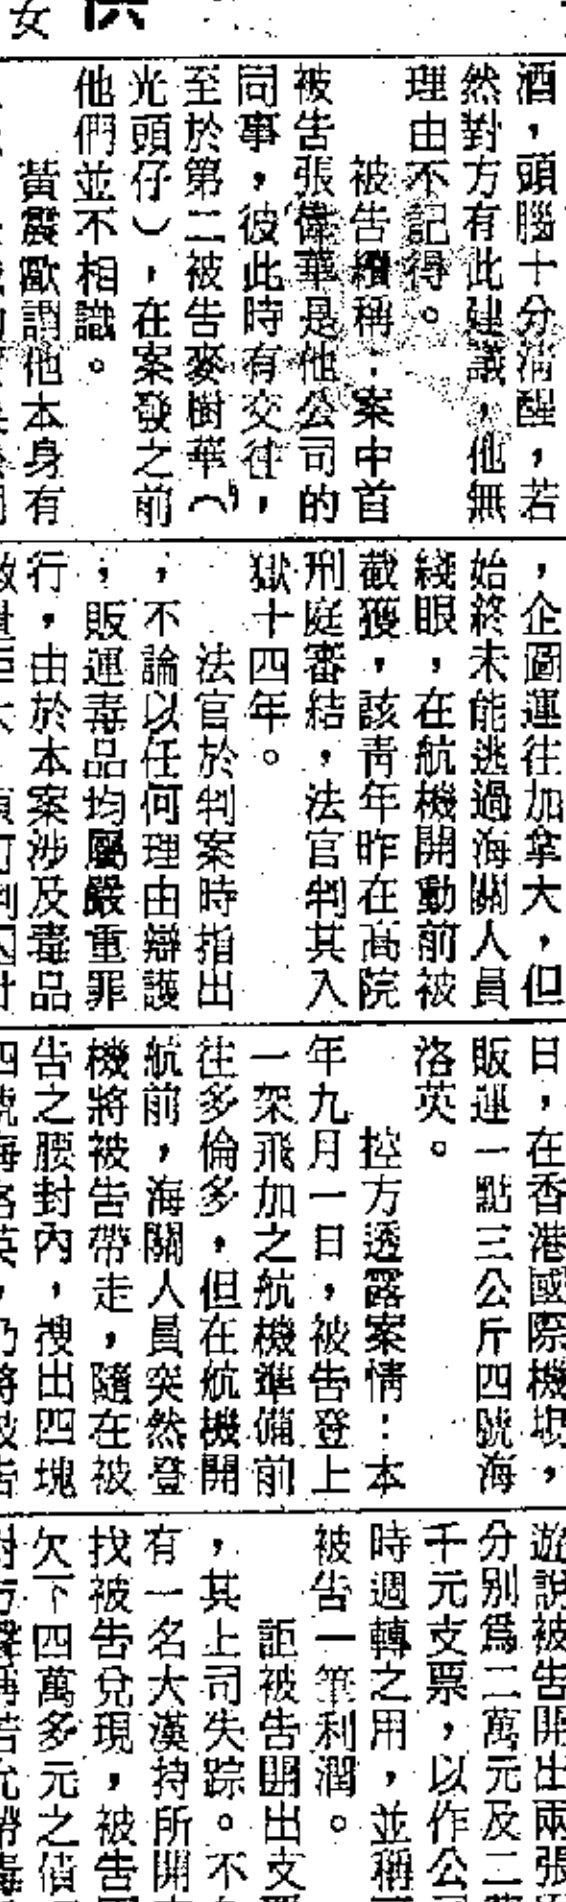 女
供
酒，頭腦十分清醒，若
然對方有此建議，他無
理由不記得。
被告續稱：案中首
被告張偉華是他公司的
同事，彼此時有交往，
至於第二被告麥樹華（
光頭仔），在案發之前
他們並不相識。
黃震歐謂他本身有
，企圖運往加拿大，但
始終未能逃過海關人員
綫眼，在航機開動前被
截獲，該青年昨在高院
刑庭審結，法官判其入
獄十四年。
法官於判案時指出
，不論以任何理由辯護
，販運毒品均屬嚴重罪
行，由於本案涉及毒品
日，在香港國際機場，
販運一點三公斤四號海
洛英。
控方透露案情：本
年九月一日，被告登上
一架飛加之航機準備前
往多倫多，但在航機開
航前，海關人員突然登
機將被告帶走，隨在被
告之腰封內，搜出四塊
四號海洛英，乃將被告
遊說被告開出兩張
分別為二萬元及二萬
千元支票，以作公司
時週轉之用，並稱
被告一筆利潤。
詎被告開出支票
，其上司失踪。不
有一名大漢持所開支
找被告兌現，被告
欠下四萬多元之債
對方聲稱若允帶毒